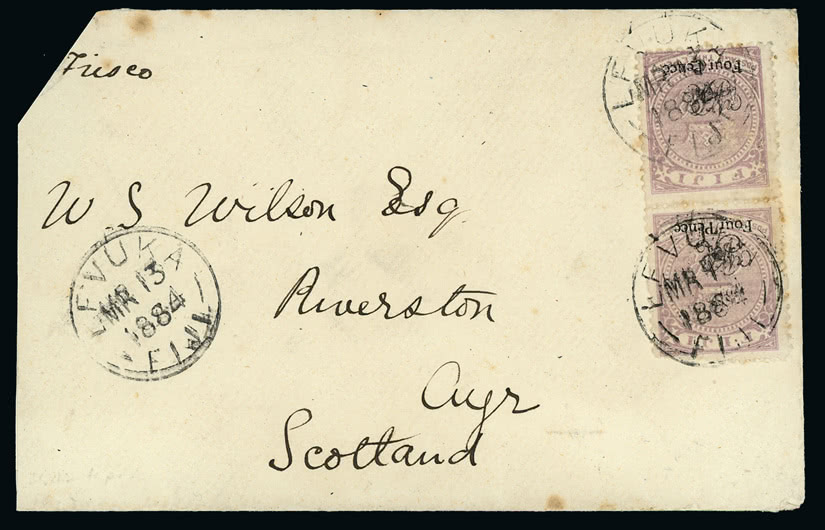 Frisco
W S Wilson Esq
Riverston
Ayr
Scotland
LEVUKA
MR 13
1884
FIJI
LEVUKA
MR
1884
FIJI
Four Pence
FIJI
LEVUKA
MR
1884
FIJI
Four Pence
FIJI